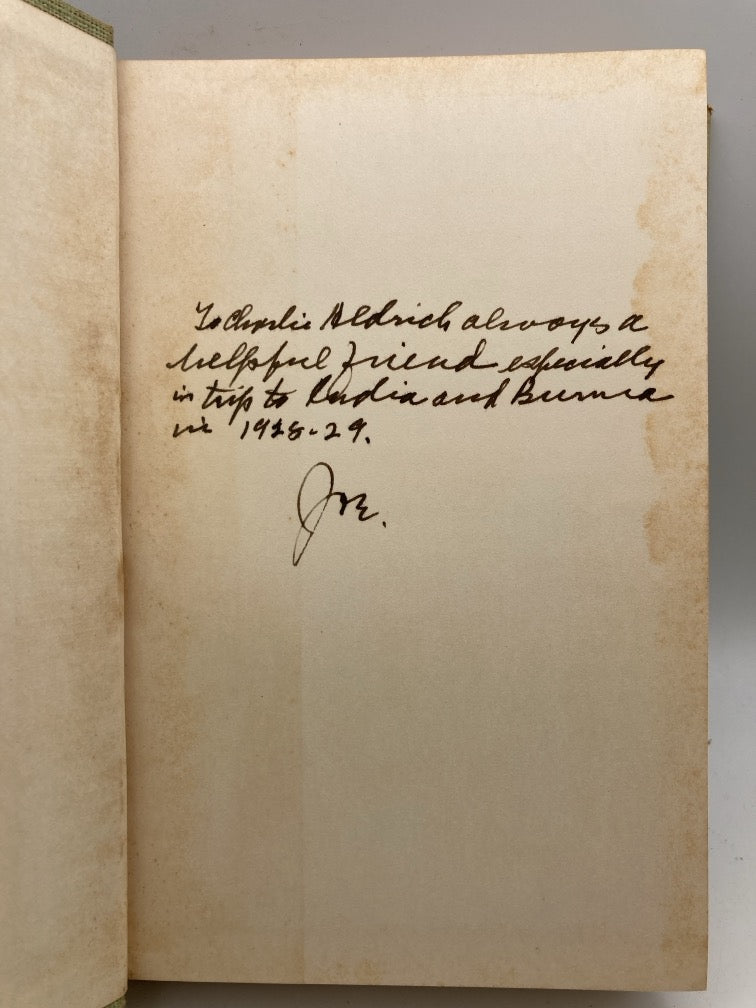 To Charlie Aldrich always a
helpful friend especially
in trip to India and Burma
in 1928-29.
Joe.